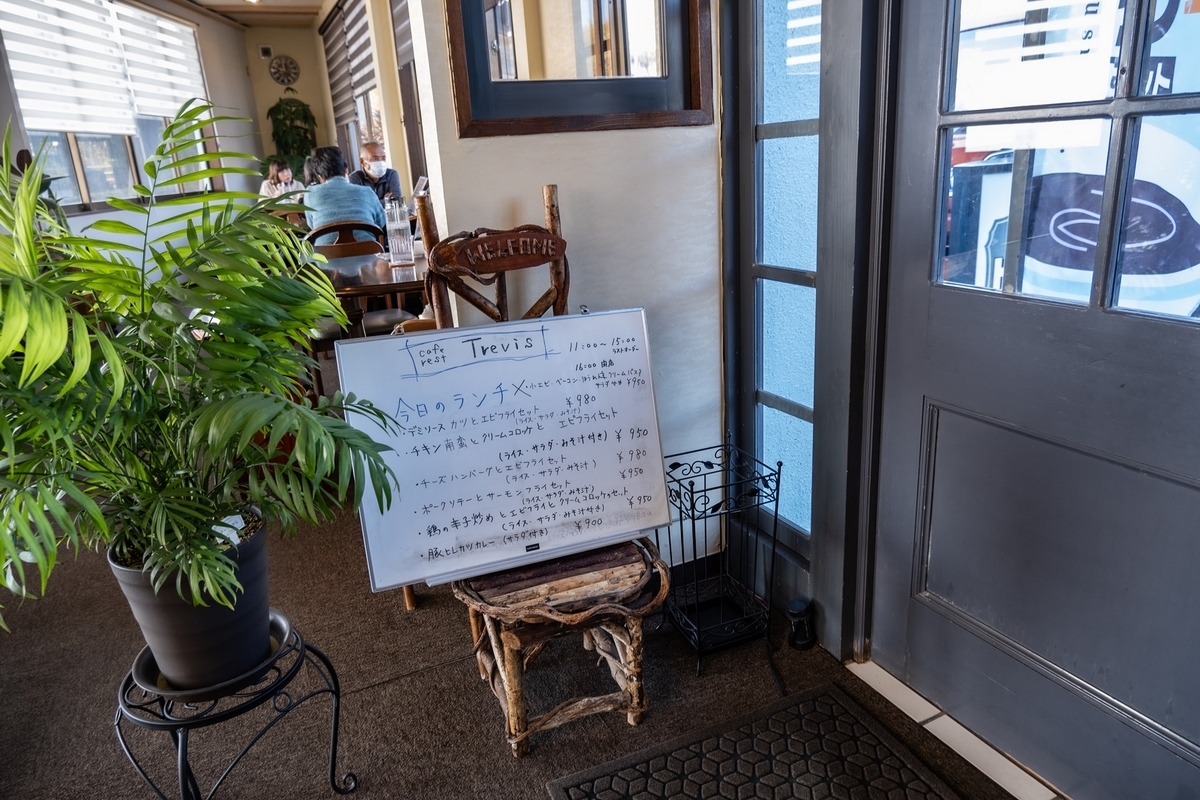 WELCOME
cafe rest Trevis 11:00〜15:00
ラストオーダー
16:00 閉店
今日のランチ
・小エビ・ベーコン・ほうれん草クリームパスタ
サラダ付 ¥950
・デミソースカツとエビフライセット ¥980
(ライス・サラダ・みそ汁)
・チキン南蛮とクリームコロッケと エビフライセット
(ライス・サラダ・みそ汁付き) ¥950
・チーズハンバーグとエビフライセット ¥980
(ライス・サラダ・みそ汁)
・ポークソテーとサーモンフライセット ¥950
(ライス・サラダ・みそ汁)
・鶏の辛子炒めとエビフライとクリームコロッケのセット ¥950
(ライス・サラダ・みそ汁付)
・豚ヒレカツカレー (サラダ付き) ¥900